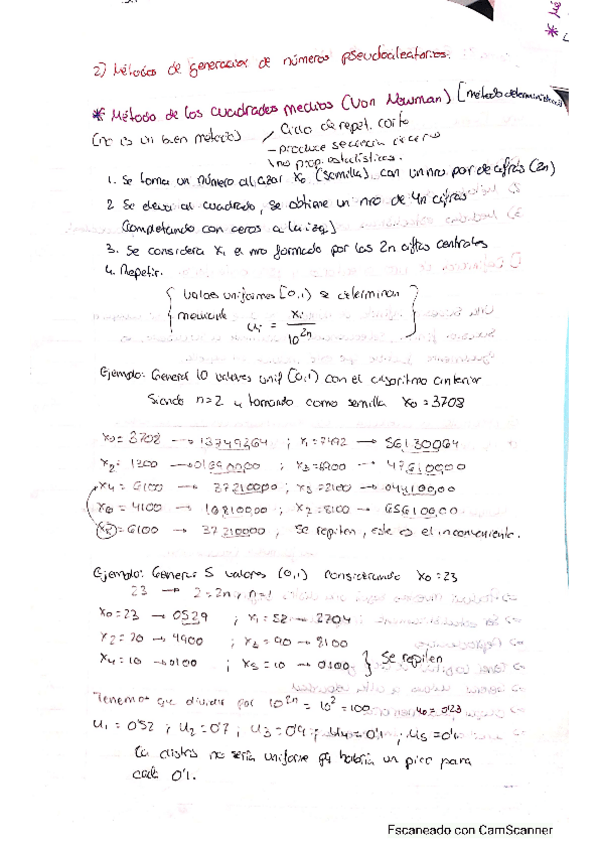 2) Métodos de generación de números pseudoaleatorios.
* Método de los cuadrados medios (Von Newman) [método determinístico]
(no es un buen método) / Ciclo de repet. corto
- produce secuencia de ceros
\ no prop. estadísticas.
1. Se toma un número al azar x₀ (semilla) con un nro par de cifras (2n)
2. Se eleva al cuadrado, se obtiene un nro de 4n cifras
(completando con ceros a la izq)
3. Se considera x₁ el nro formado por las 2n cifras centrales
4. Repetir.
{ valores uniformes [0,1) se determinan
mediante uᵢ = xᵢ / 10²ⁿ }
Ejemplo: Generar 10 valores unif (0,1) con el algoritmo anterior
Siendo n=2 y tomando como semilla x₀ = 3708
x₀ = 3708 → 13749264 ; x₁ = 7492 → 56130064
x₂ = 1300 → 01690000 ; x₃ = 6900 → 47610000
x₄ = 6100 → 37210000 ; x₅ = 2100 → 04410000
x₆ = 4100 → 16810000 ; x₇ = 8100 → 65610000
x₈ = 6100 → 37210000 , Se repiten, este es el inconveniente.
Ejemplo: Generar 5 valores (0,1) considerando x₀ = 23
23 → 2 = 2n ; n=1
x₀ = 23 → 0529 ; x₁ = 52 → 2704
x₂ = 70 → 4900 ; x₃ = 90 → 8100
x₄ = 10 → 0100 ; x₅ = 10 → 0100 } Se repiten
Tenemos que dividir por 10²ⁿ = 10² = 100 u₀ = 0'23
u₁ = 0'52 ; u₂ = 0'7 ; u₃ = 0'9 ; u₄ = 0'1 ; u₅ = 0'1
La distrib no sería uniforme pq habría un pico para
cada 0'1.
Escaneado con CamScanner